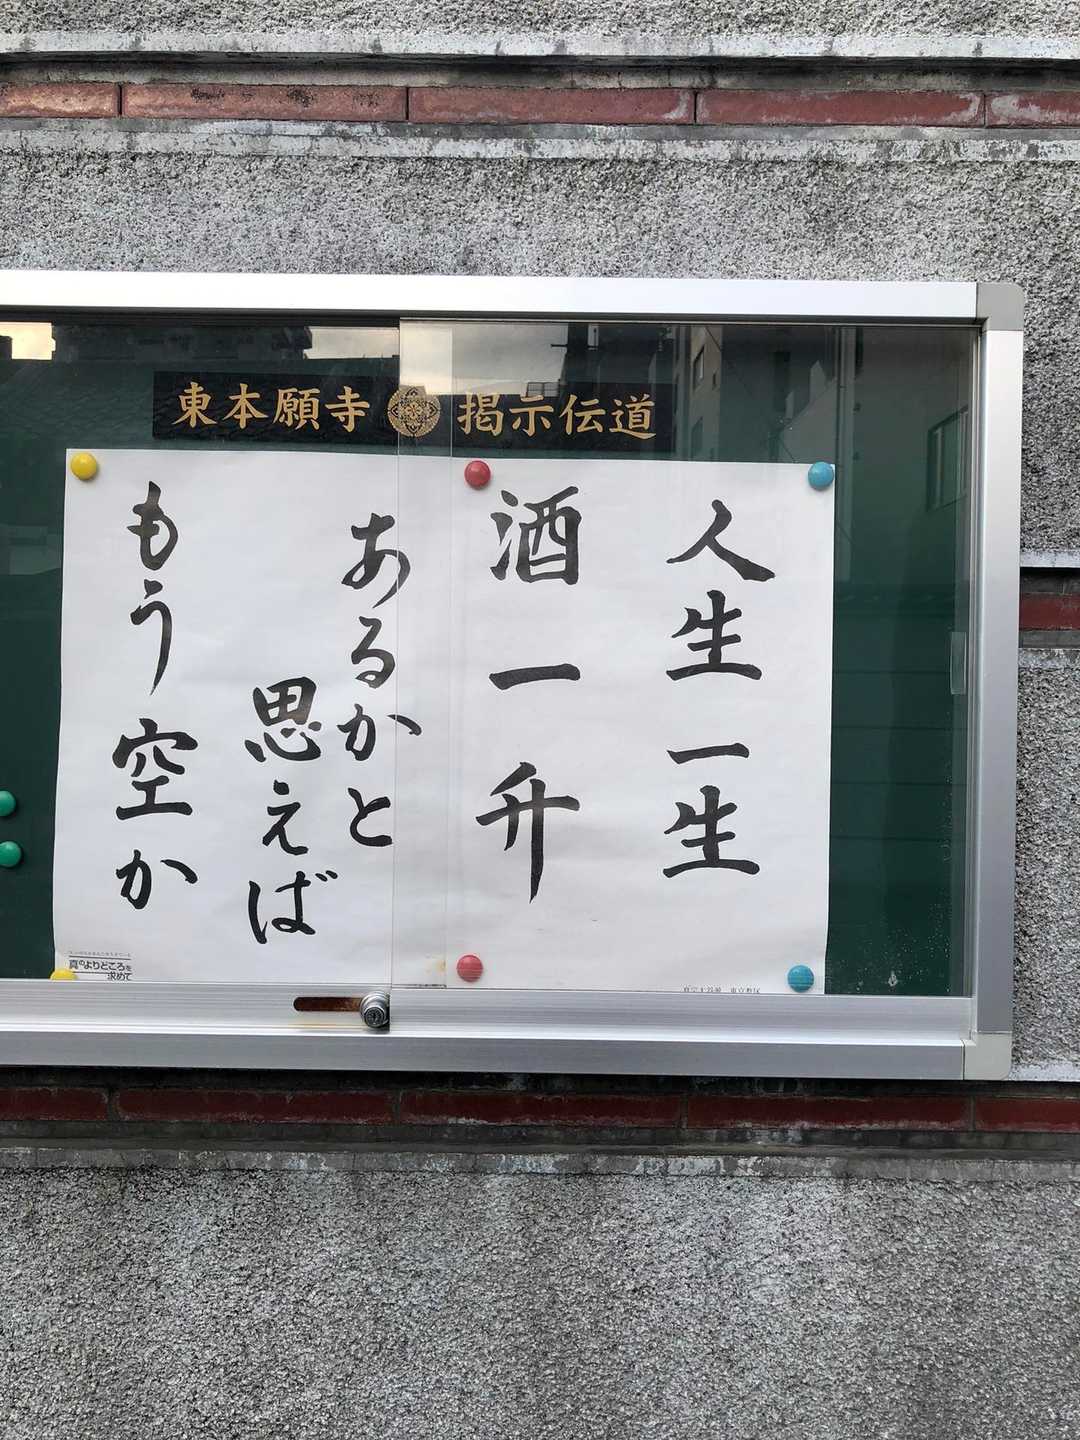 東本願寺 掲示伝道
人生一生
酒一升
あるかと
思えば
もう空か
真のよりどころを
求めて